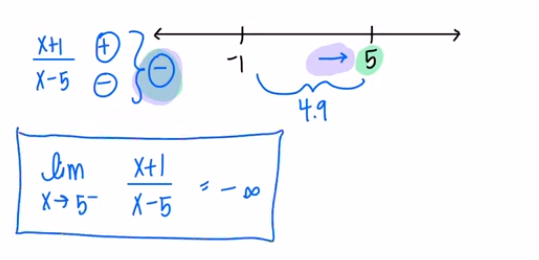 x+1 ⊕
x-5 ⊖
} ⊖
-1 → 5
4.9
lim x+1 = -∞
x→5⁻ x-5